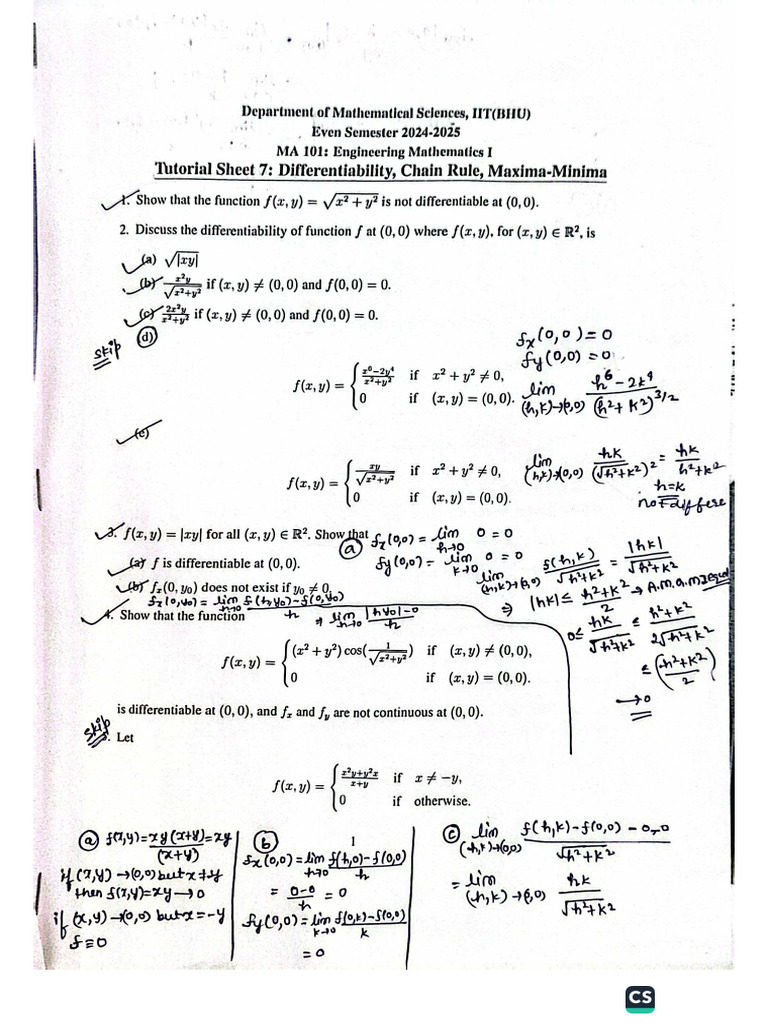 Department of Mathematical Sciences, IIT(BHU)
Even Semester 2024-2025
MA 101: Engineering Mathematics I
Tutorial Sheet 7: Differentiability, Chain Rule, Maxima-Minima
1. Show that the function f(x, y) = √(x² + y²) is not differentiable at (0, 0).
2. Discuss the differentiability of function f at (0, 0) where f(x, y), for (x, y) ∈ ℝ², is
(a) √|xy|
(b) x²y/√(x²+y²) if (x, y) ≠ (0, 0) and f(0, 0) = 0.
(c) 2x²y/(x²+y²) if (x, y) ≠ (0, 0) and f(0, 0) = 0.
skip (d)
f(x, y) = { (x⁶−2y⁴)/(x²+y²) if x² + y² ≠ 0,
0 if (x, y) = (0, 0).
fx(0,0) = 0
fy(0,0) = 0
lim (h,k)→(0,0) (h⁶ − 2k⁴)/(h² + k²)^3/2
(e)
f(x, y) = { xy/√(x²+y²) if x² + y² ≠ 0,
0 if (x, y) = (0, 0).
lim (h,k)→(0,0) hk/(√h²+k²)² = hk/(h²+k²)
h=k
not differe
3. f(x, y) = |xy| for all (x, y) ∈ ℝ². Show that
(a) f is differentiable at (0, 0).
(b) fx(0, y0) does not exist if y0 ≠ 0.
(a) fx(0,0) = lim h→0 0 = 0
fy(0,0) = lim k→0 0 = 0
lim (h,k)→(0,0) f(h,k)/√(h²+k²) = |hk|/√(h²+k²)
⇒ |hk| ≤ (h²+k²)/2 → A.m. G.m
0 ≤ hk/√(h²+k²) ≤ (h²+k²)/(2√(h²+k²))
≤ (h²+k²)/2
→ 0
fx(0,y0) = lim h→0 (f(h,y0) − f(0,y0))/h
⇒ lim h→0 (|hy0| − 0)/h
4. Show that the function
f(x, y) = { (x² + y²) cos(1/√(x²+y²)) if (x, y) ≠ (0, 0),
0 if (x, y) = (0, 0).
is differentiable at (0, 0), and fx and fy are not continuous at (0, 0).
skip
. Let
f(x, y) = { (x²y+y²x)/(x+y) if x ≠ −y,
0 if otherwise.
1
(a) f(x,y) = xy(x+y)/(x+y) = xy
if (x,y) → (0,0) but x ≠ y
then f(x,y) = xy → 0
if (x,y) → (0,0) but x = −y
f ≡ 0
(b)
fx(0,0) = lim h→0 (f(h,0) − f(0,0))/h
= (0−0)/h = 0
fy(0,0) = lim k→0 (f(0,k) − f(0,0))/k
= 0
(c) lim (h,k)→(0,0) (f(h,k) − f(0,0) − 0 − 0)/√(h²+k²)
= lim (h,k)→(0,0) hk/√(h²+k²)
CS